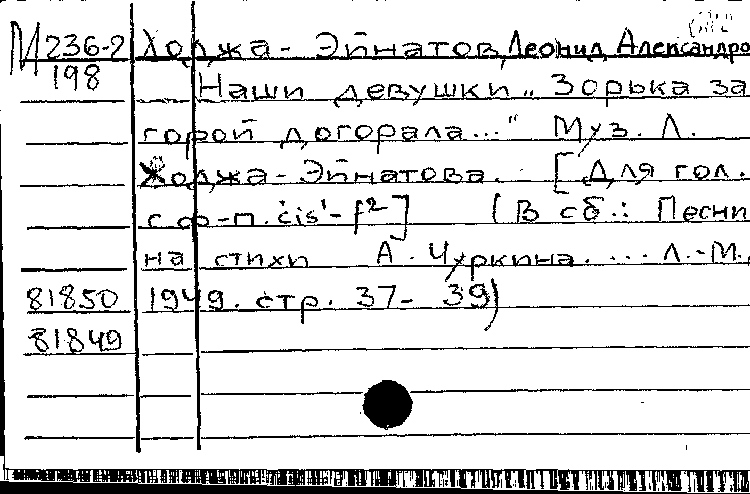 М 236-2 Ходжа-Эйнатов, Леонид Александро
198 Наши девушки „Зорька за
горой догорала..." Муз. Л.
Ходжа-Эйнатова. [Для гол.
с ф-п. cis¹-f²] (В сб.: Песни
на стихи А. Чуркина. ... Л.-М.,
81850 1949. стр. 37-39)
81849